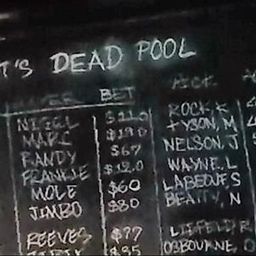 T'S DEAD POOL
BET
NIGEL $210 ROCK, K
MARC $190 TYSON, M
RANDY $67 NELSON, J
FRANKIE $120 WAYNE, L
MOLE $60 LABEOUF, S
JIMBO $80 BEATTY, N
REEVES $77 LIEFELD, R
$85 OSBOURNE, O